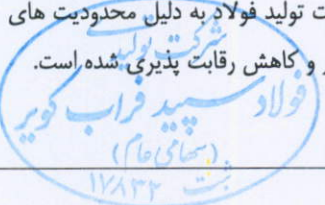 ت تولید فولاد به دلیل محدودیت های
و کاهش رقابت پذیری شده است.
شرکت تولید
فولاد سپید فراب کویر
(سهامی عام)
ثبت ۱۷۸۳۲